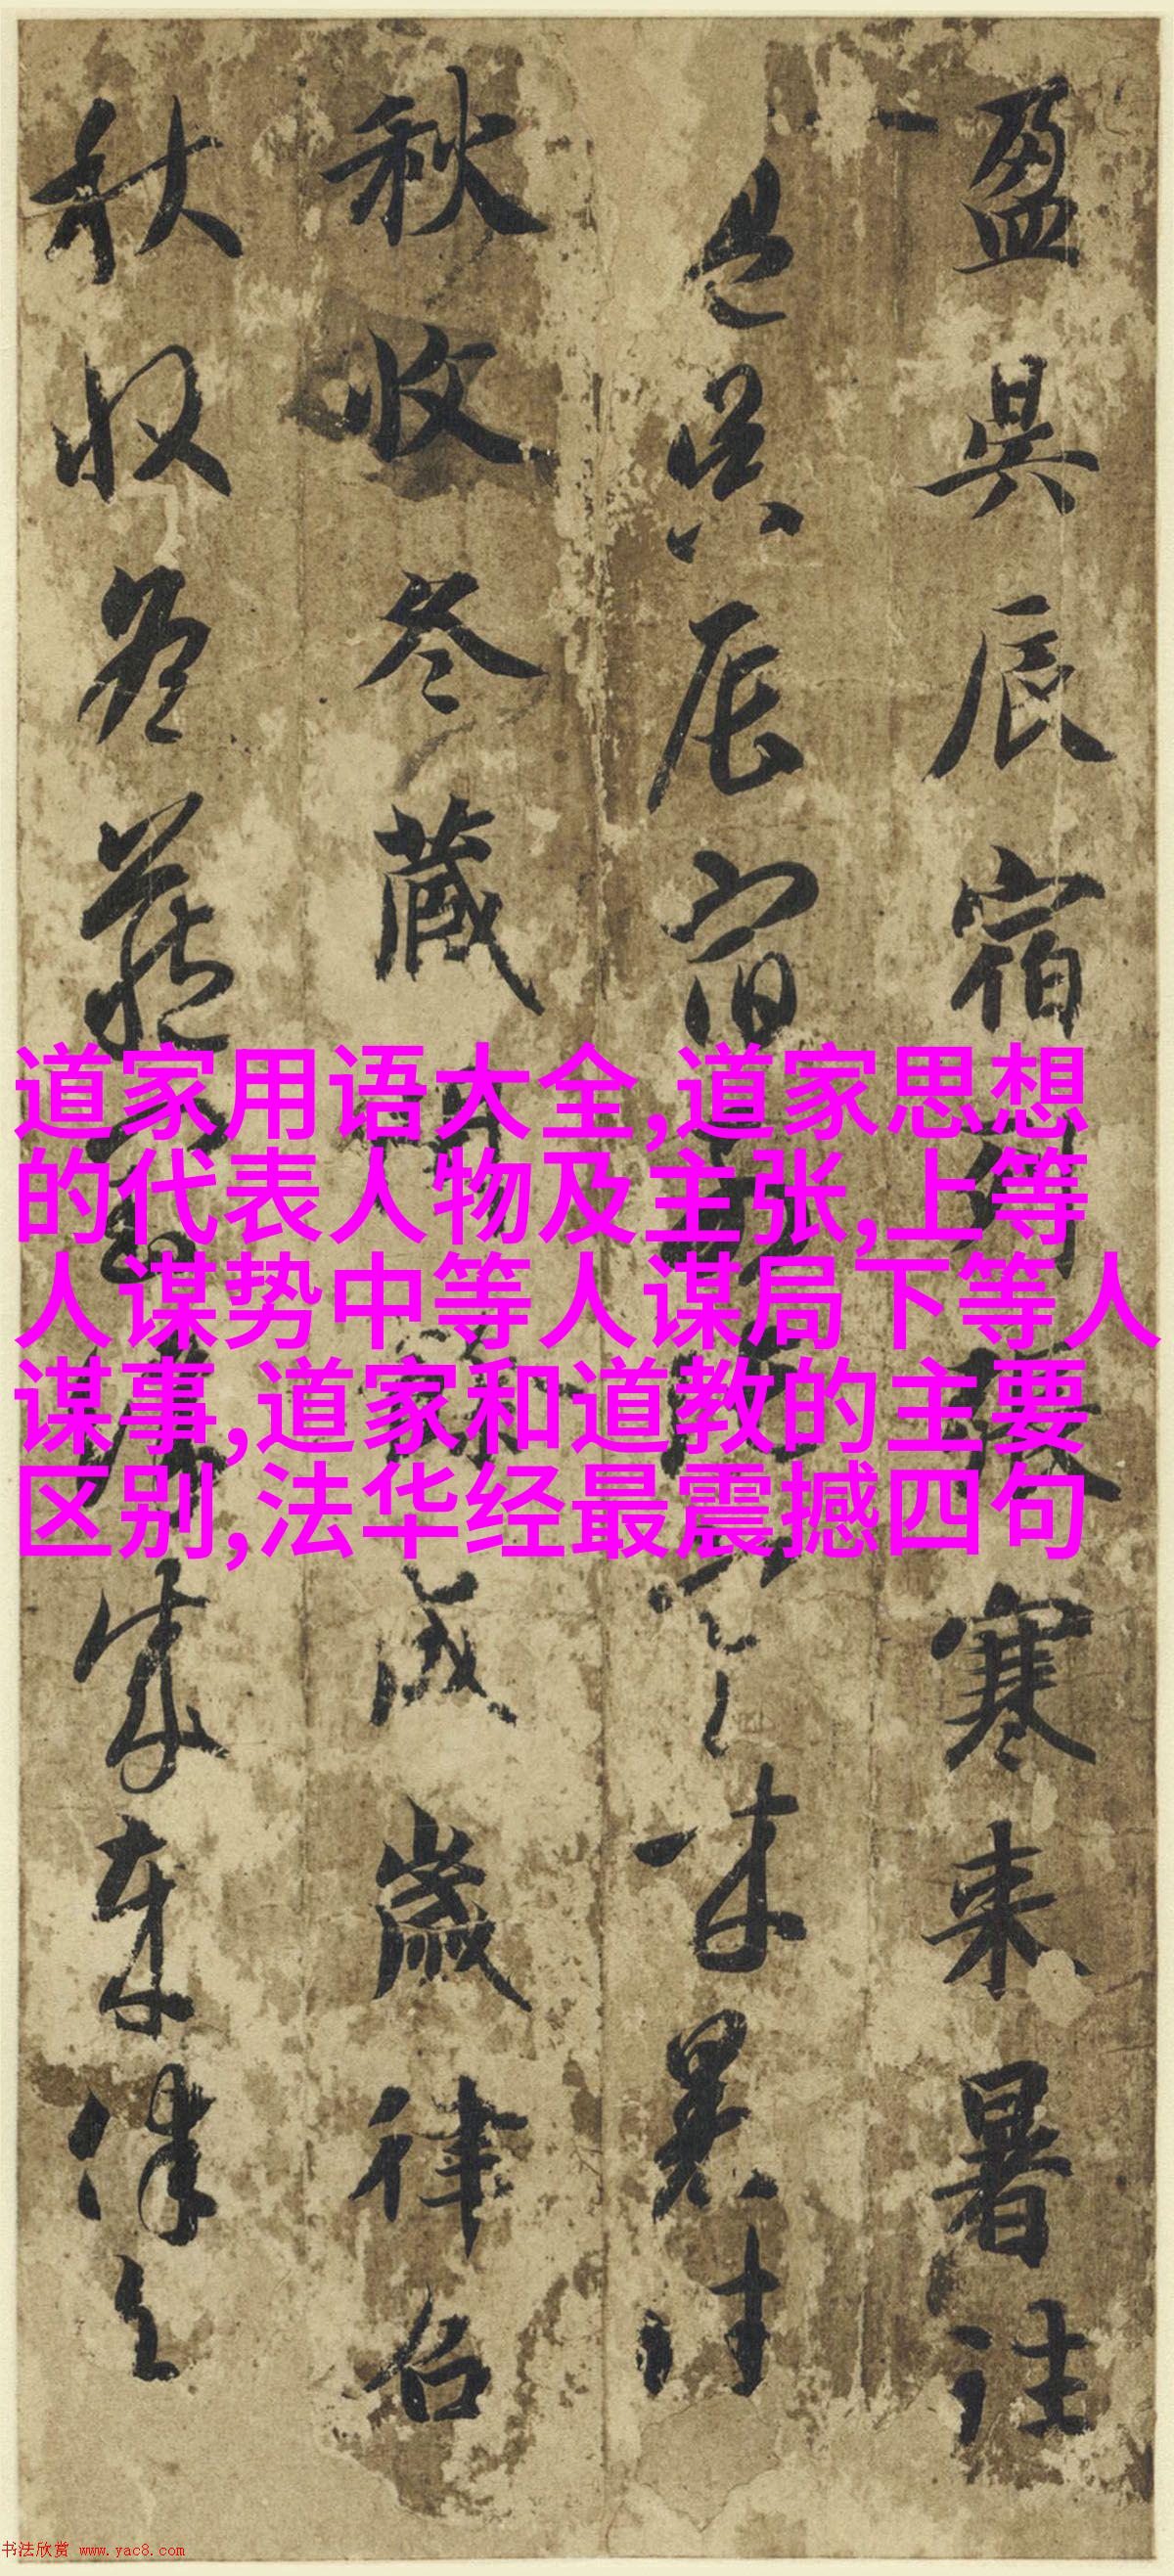 盈昃辰宿寒来暑往
昃辰宿来暑往
秋收冬蔵成歲律召
秋收冬藏
道家用语大全,道家思想
的代表人物及主张,上等
人谋势中等人谋局下等人
谋事,道家和道教的主要
区别,法华经最震撼四句
书法欣赏 www.yac8.com